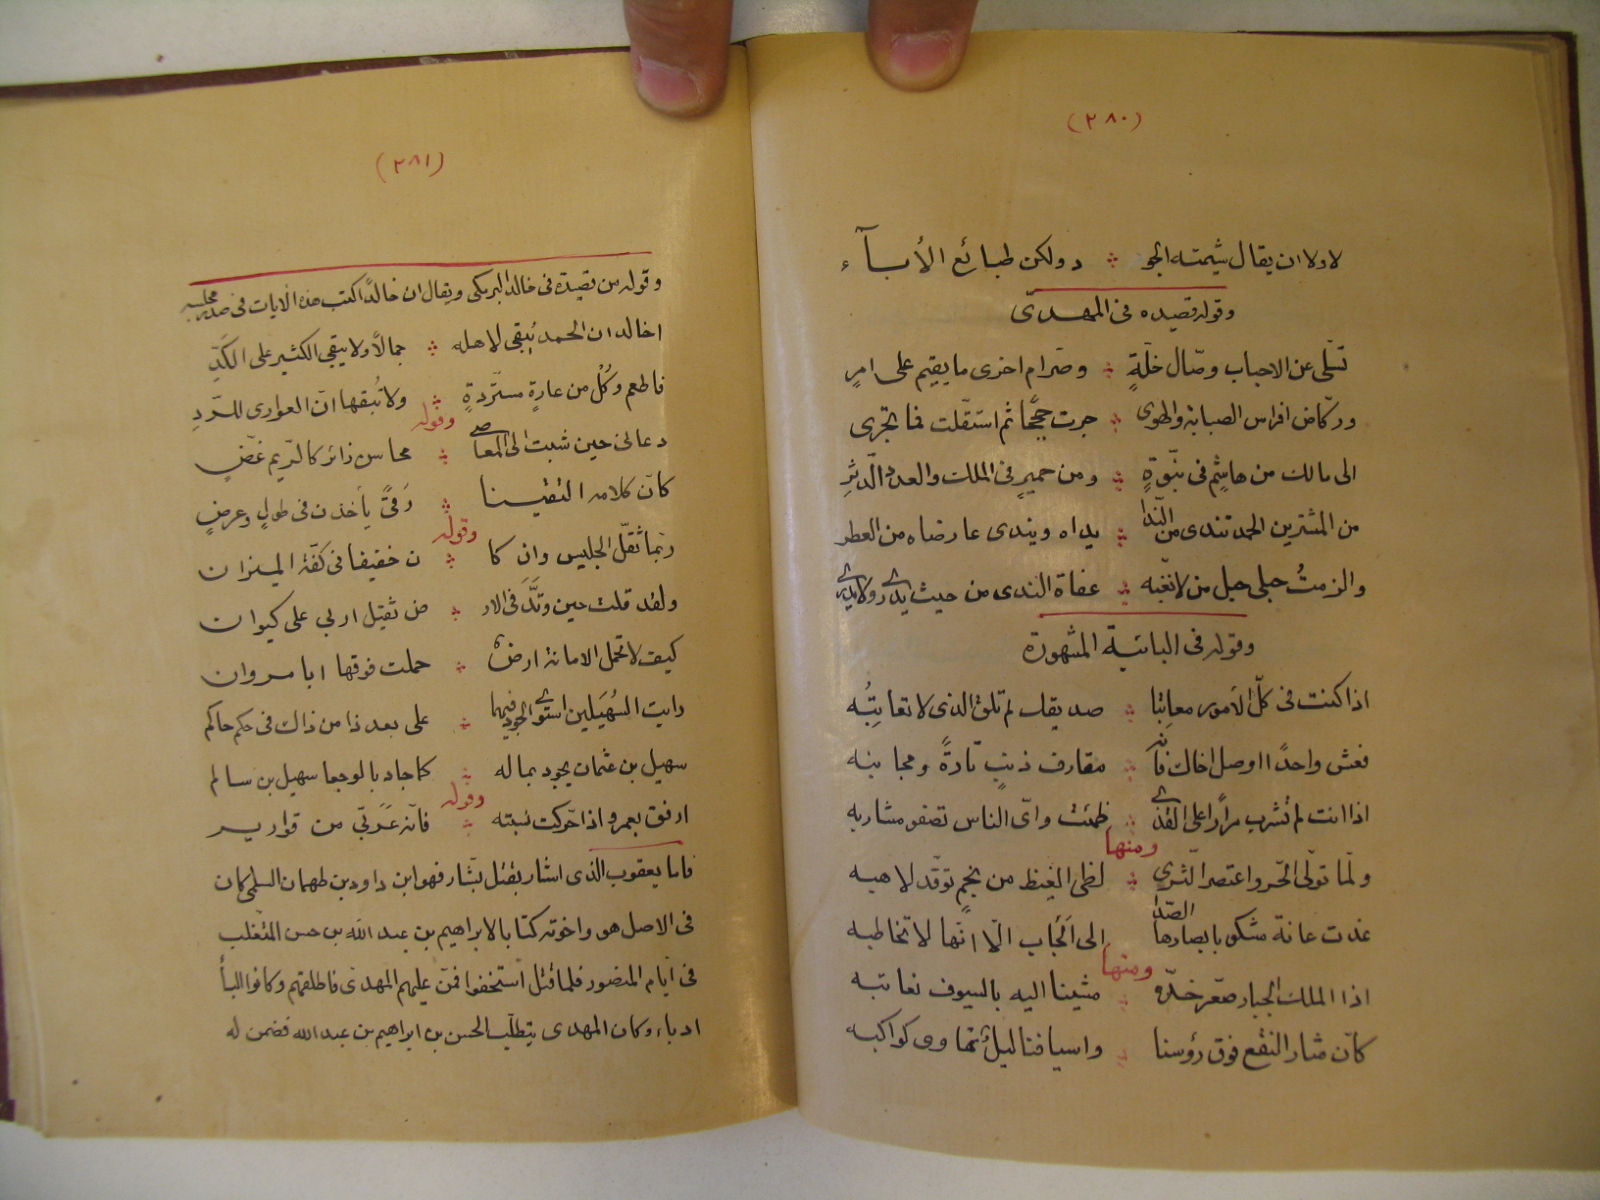 (٢٨٠)
لا ولا ان يقال شيمته الجو ∴ د ولكن طبائع الأبآء
وقوله قصيده فى المهدىّ
تسلّى عن الاحباب وصّال خلّةٍ ∴ وصرام اخرى ما يقيم على امرٍ
وركّاض افراس الصبابة والهوى ∴ جرت حججًا ثم استقلت فما تجرى
الى مالك من هاشم فى نبوّةٍ ∴ ومن حميرٍ فى الملك والعدد الدّثرِ
من المشترين الحمد تندى من النّدا ∴ يداه ويندى عارضاه من العطر
والزمتُ حبلى حبل من لا تغبّه ∴ عفاة الندى من حيث يدرى ولا يدرى
وقوله فى البائية المشهورة
اذا كنت فى كلّ الامور معاتِبا ∴ صديقك لم تلق الذى لا تعاتِبُه
فعش واحدًا او صل اخاك فانّه ∴ مقارف ذنبٍ تارةً ومجانبه
اذا انت لم تشرب مرارًا على القذى ∴ ظمئت واىّ الناس تصفو مشاربه
ومنها
ولمّا تولّى الحّر واعتصر الثّرى ∴ لظى القيظ من نجمٍ توقّد لاهبه
غدت عانة تشكو بابصارها الصّدا ∴ الى الجاب الّا انّها لا تخاطبه
ومنها
اذا الملك الجبار صعّر خدّه ∴ مشينا اليه بالسيوف نعاتبه
كانّ مثار النقع فوق رؤسنا ∴ واسيافنا ليلٌ تهاوى كواكبه
(٢٨١)
وقوله من قصيدة فى خالد البرمكى ويقال ان خالدًا كتب هذه الابيات فى صدر مجلسه
اخالد ان الحمد يُبقى لاهله ∴ جمالاً ولا يبقى الكثير على الكَدِّ
فاطعم وكُل من عارةٍ مستردةٍ ∴ ولا تُبقها انّ العوارى للرّدِ
وقوله
دعانى حين شبت الى المعاصى ∴ محاسن زائر كالرّيم غضّ
كانّ كلامه التقينا ∴ رُقىً ياخذن فى طولٍ وعرضٍ
وقوله
ربّما ثقّل الجليس وان كا ∴ ن خفيفا فى كفّة الميزان
ولقد قلت حين وتّدَ فى الار ∴ ض ثقيل اربى على كيوان
كيف لا تحمل الامانة ارضٌ ∴ حملت فوقها ابا مروان
رايت السُهَيلين استوى الجود فيهما ∴ على بعد ذا من ذاك فى حكم حاكم
سهيل بن عثمان يجود بماله ∴ كما جاد بالوجعا سهيل بن سالم
وقوله
ارفق بعمرو اذا حرّكت نسبته ∴ فانّه عَرَبّى من قوارير
فاما يعقوب الذى اشار بقتل بشّار فهو ابن داود بن طهمان السلمى كان
فى الاصل هو واخوته كتابا لابراهيم بن عبد الله بن حسن المتغلب
فى ايّام المنصور فلما قتل استخفوا فمنّ عليهم المهدى فاطلقهم وكانوا البأ
ادباء وكان المهدى يتطلّب الحسن بن ابراهيم بن عبد الله فضمن له